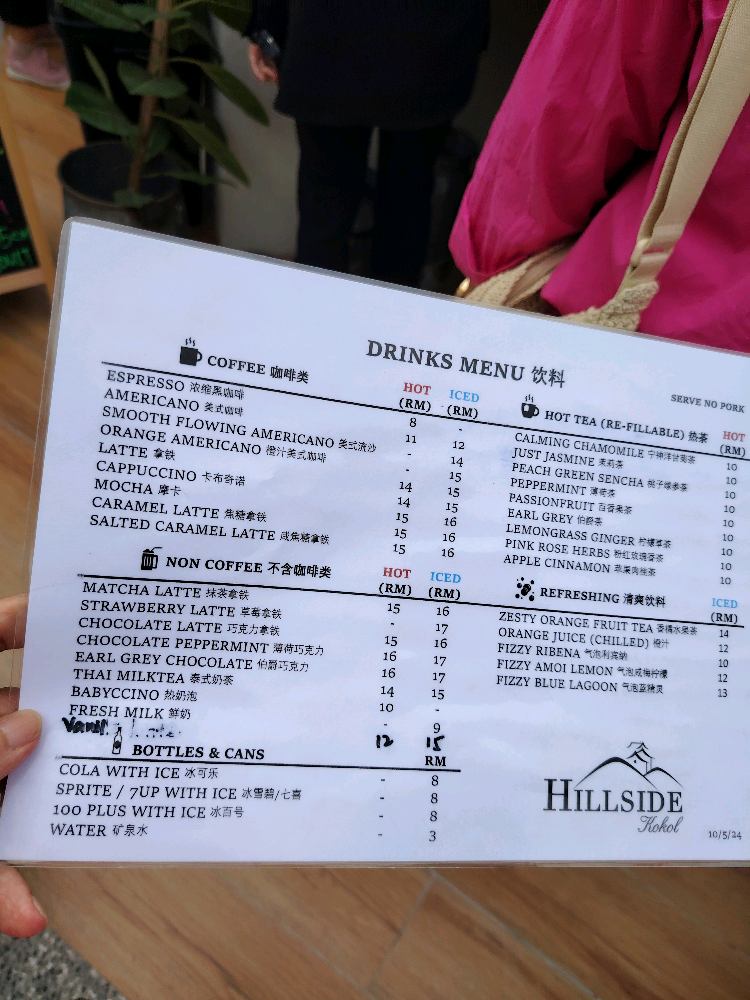 DRINKS MENU 饮料
SERVE NO PORK
COFFEE 咖啡类 HOT (RM) ICED (RM)
ESPRESSO 浓缩黑咖啡 8 -
AMERICANO 美式咖啡 11 12
SMOOTH FLOWING AMERICANO 美式流沙 - 14
ORANGE AMERICANO 橙汁美式咖啡 - 15
LATTE 拿铁 14 15
CAPPUCCINO 卡布奇诺 14 15
MOCHA 摩卡 15 16
CARAMEL LATTE 焦糖拿铁 15 16
SALTED CARAMEL LATTE 咸焦糖拿铁 15 16
NON COFFEE 不含咖啡类 HOT (RM) ICED (RM)
MATCHA LATTE 抹茶拿铁 15 16
STRAWBERRY LATTE 草莓拿铁 - 17
CHOCOLATE LATTE 巧克力拿铁 15 16
CHOCOLATE PEPPERMINT 薄荷巧克力 16 17
EARL GREY CHOCOLATE 伯爵巧克力 16 17
THAI MILKTEA 泰式奶茶 14 15
BABYCCINO 热奶泡 10 -
FRESH MILK 鲜奶 - 9
12 15
BOTTLES & CANS RM
COLA WITH ICE 冰可乐 - 8
SPRITE / 7UP WITH ICE 冰雪碧/七喜 - 8
100 PLUS WITH ICE 冰百号 - 8
WATER 矿泉水 - 3
HOT TEA (RE-FILLABLE) 热茶 HOT (RM)
CALMING CHAMOMILE 宁神洋甘菊茶 10
JUST JASMINE 茉莉茶 10
PEACH GREEN SENCHA 桃子绿参茶 10
PEPPERMINT 薄荷茶 10
PASSIONFRUIT 百香果茶 10
EARL GREY 伯爵茶 10
LEMONGRASS GINGER 柠檬草茶 10
PINK ROSE HERBS 粉红玫瑰香茶 10
APPLE CINNAMON 苹果肉桂茶 10
REFRESHING 清爽饮料 ICED (RM)
ZESTY ORANGE FRUIT TEA 香橘水果茶 14
ORANGE JUICE (CHILLED) 橙汁 12
FIZZY RIBENA 气泡利宾纳 10
FIZZY AMOI LEMON 气泡咸梅柠檬 12
FIZZY BLUE LAGOON 气泡蓝精灵 13
HILLSIDE
Kokol
10/5/24